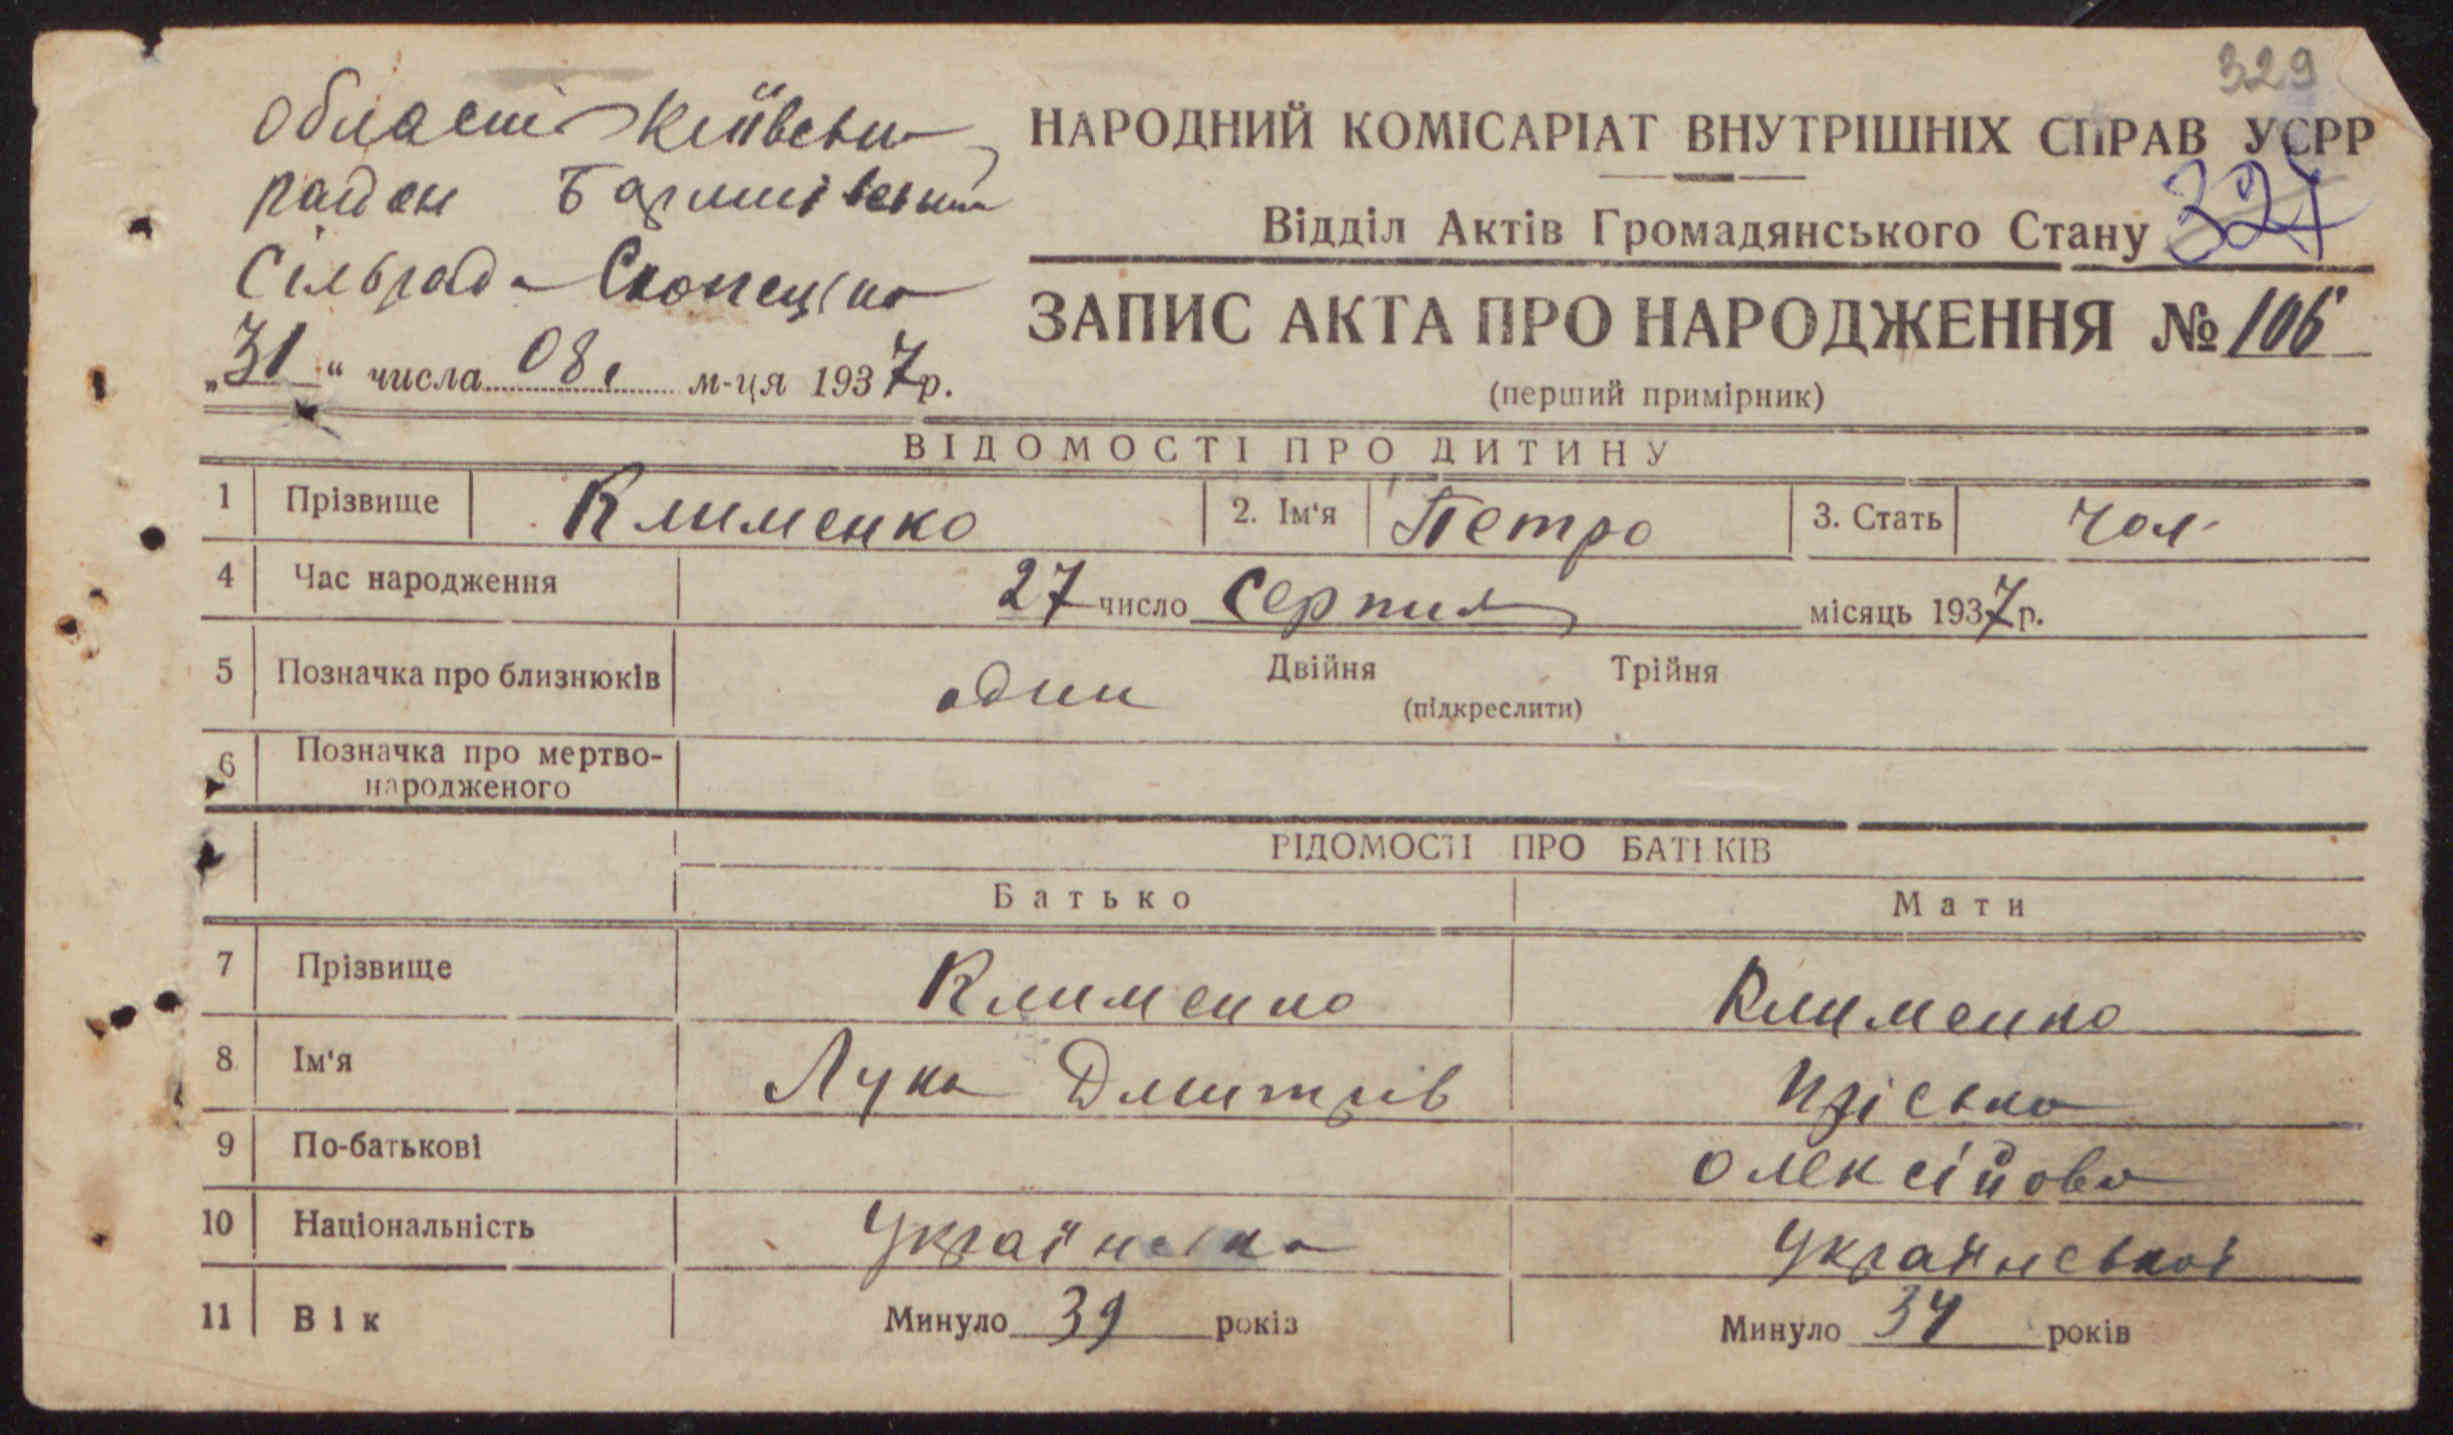 329
області Київськи
НАРОДНИЙ КОМІСАРІАТ ВНУТРІШНІХ СПРАВ УСРР
район Баришівськи
Відділ Актів Громадянського Стану
Сільрада Скопецька
ЗАПИС АКТА ПРО НАРОДЖЕННЯ № 106
„31“ числа 08 м-ця 1937р.
(перший примірник)
ВІДОМОСТІ ПРО ДИТИНУ
1 Прізвище Клименко 2. Ім'я Петро 3. Стать чол
4 Час народження 27 число Серпня місяць 1937р.
5 Позначка про близнюків один Двійня Трійня
(підкреслити)
6 Позначка про мертво-
народженого
ВІДОМОСТІ ПРО БАТЬКІВ
Батько Мати
7 Прізвище Клименко Клименко
8 Ім'я Лука Дмитрів Пріська
9 По-батькові Олексійова
10 Національність Українська Української
11 Вік Минуло 39 років Минуло 34 років